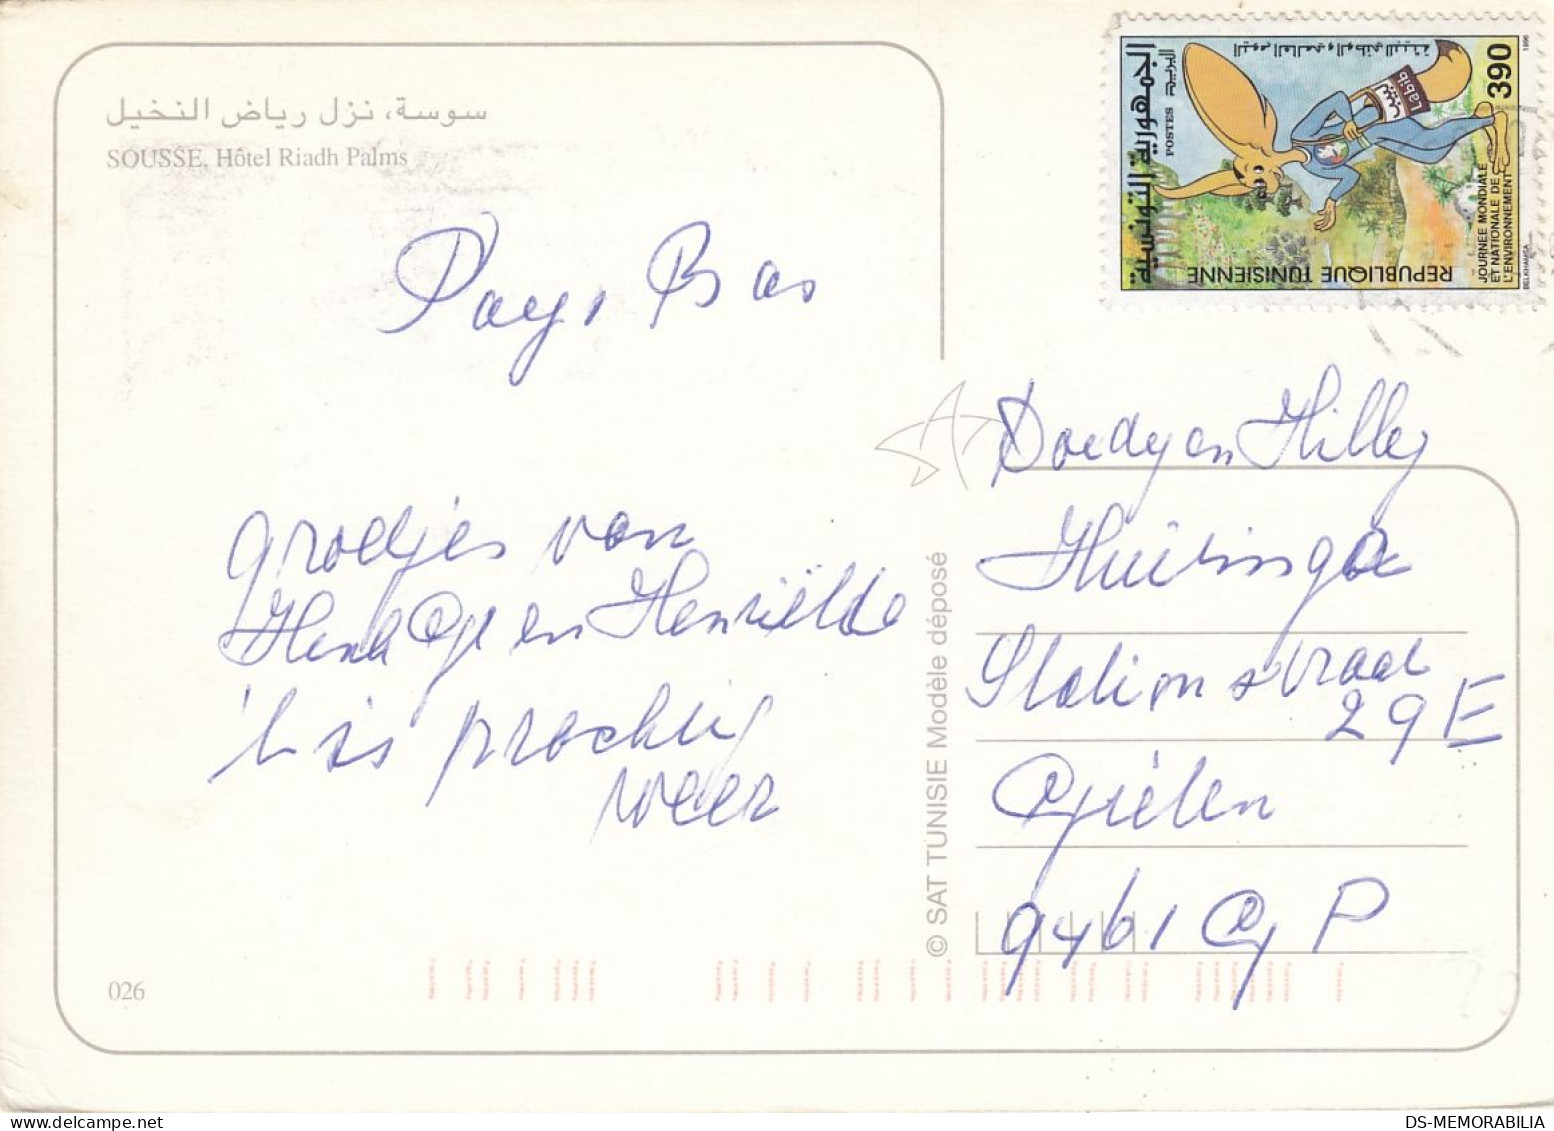 سوسة، نزل رياض النخيل
SOUSSE, Hôtel Riadh Palms
Pays Bas
groetjes van
Henk en Henriëtte
't is prachtig
weer
026
© SAT TUNISIE Modèle déposé
الجمهورية التونسية
البريد
POSTES
اليوم العالمي والوطني للبيئة
Labib
390
1996
JOURNEE MONDIALE
ET NATIONALE DE
L'ENVIRONNEMENT
REPUBLIQUE TUNISIENNE
BELKHAMSA
SAT
Doedy en Hilley
Huizinga
Stationsstraat
29E
Gieten
9461 GP
DS-MEMORABILIA